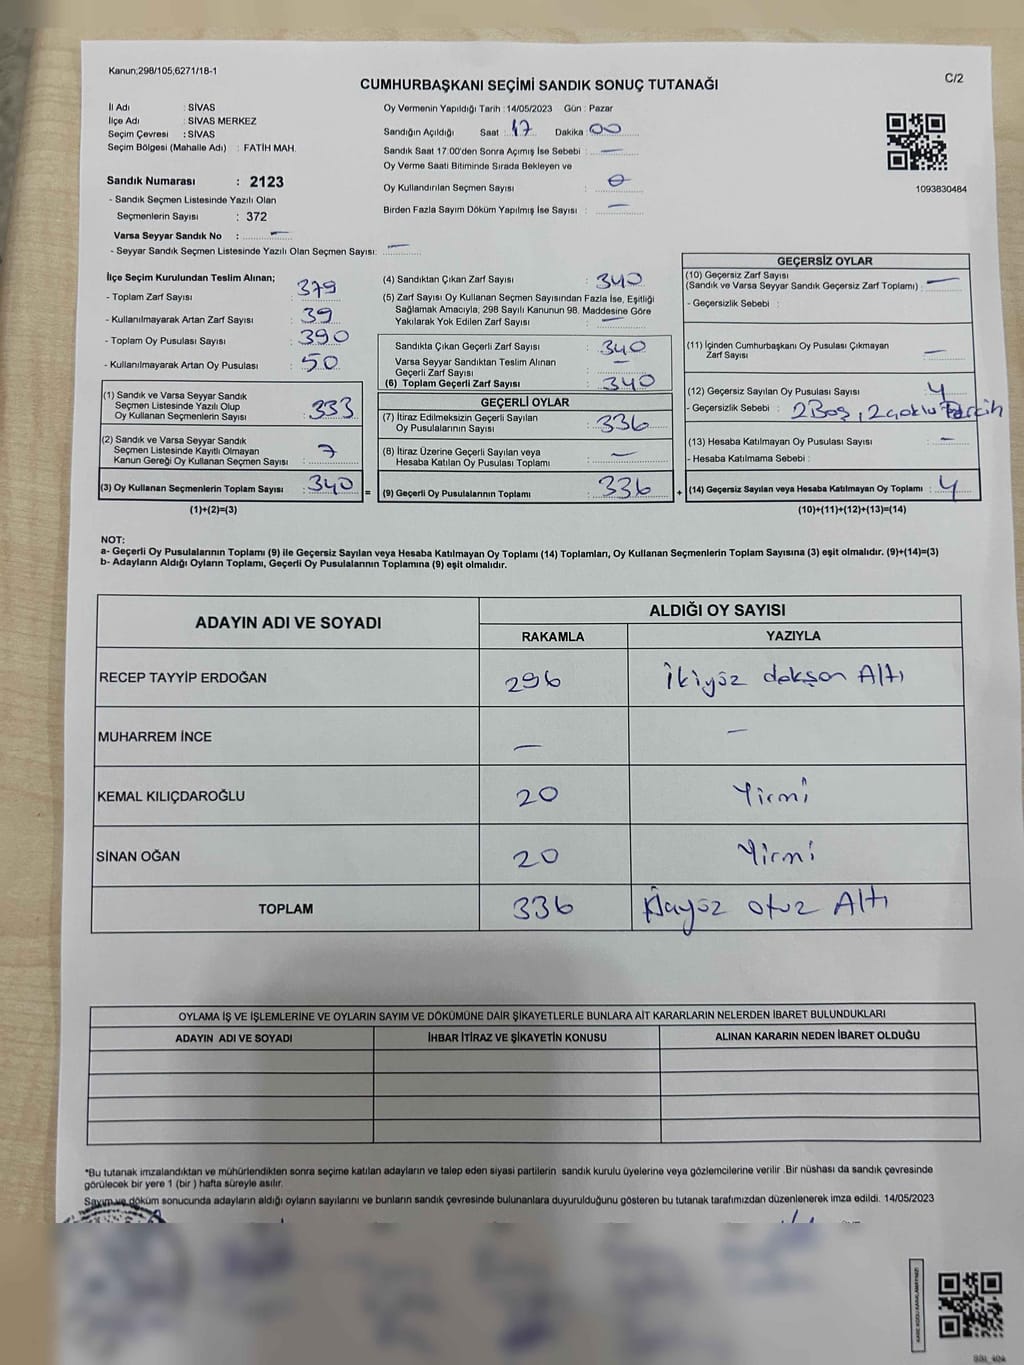 Kanun;298/105,6271/18-1
C/2
CUMHURBAŞKANI SEÇİMİ SANDIK SONUÇ TUTANAĞI
İl Adı : SİVAS
İlçe Adı : SİVAS MERKEZ
Seçim Çevresi : SİVAS
Seçim Bölgesi (Mahalle Adı) : FATİH MAH.
Sandık Numarası : 2123
- Sandık Seçmen Listesinde Yazılı Olan
Seçmenlerin Sayısı : 372
Varsa Seyyar Sandık No : —
- Seyyar Sandık Seçmen Listesinde Yazılı Olan Seçmen Sayısı: —
Oy Vermenin Yapıldığı Tarih : 14/05/2023 Gün : Pazar
Sandığın Açıldığı Saat : 17 Dakika : 00
Sandık Saat 17:00'den Sonra Açımış İse Sebebi : —
Oy Verme Saati Bitiminde Sırada Bekleyen ve
Oy Kullandırılan Seçmen Sayısı : 0
Birden Fazla Sayım Döküm Yapılmış İse Sayısı : —
1093830484
İlçe Seçim Kurulundan Teslim Alınan;
- Toplam Zarf Sayısı : 379
- Kullanılmayarak Artan Zarf Sayısı : 39
- Toplam Oy Pusulası Sayısı : 390
- Kullanılmayarak Artan Oy Pusulası : 50
(1) Sandık ve Varsa Seyyar Sandık
Seçmen Listesinde Yazılı Olup
Oy Kullanan Seçmenlerin Sayısı : 333
(2) Sandık ve Varsa Seyyar Sandık
Seçmen Listesinde Kayıtlı Olmayan
Kanun Gereği Oy Kullanan Seçmen Sayısı : 7
(3) Oy Kullanan Seçmenlerin Toplam Sayısı : 340
(1)+(2)=(3)
(4) Sandıktan Çıkan Zarf Sayısı : 340
(5) Zarf Sayısı Oy Kullanan Seçmen Sayısından Fazla İse, Eşitliği
Sağlamak Amacıyla, 298 Sayılı Kanunun 98. Maddesine Göre
Yakılarak Yok Edilen Zarf Sayısı : —
Sandıkta Çıkan Geçerli Zarf Sayısı : 340
Varsa Seyyar Sandıktan Teslim Alınan
Geçerli Zarf Sayısı : —
(6) Toplam Geçerli Zarf Sayısı : 340
GEÇERLİ OYLAR
(7) İtiraz Edilmeksizin Geçerli Sayılan
Oy Pusulalarının Sayısı : 336
(8) İtiraz Üzerine Geçerli Sayılan veya
Hesaba Katılan Oy Pusulası Toplamı : —
= (9) Geçerli Oy Pusulalarının Toplamı : 336
GEÇERSİZ OYLAR
(10) Geçersiz Zarf Sayısı
(Sandık ve Varsa Seyyar Sandık Geçersiz Zarf Toplamı) : —
- Geçersizlik Sebebi :
(11) İçinden Cumhurbaşkanı Oy Pusulası Çıkmayan
Zarf Sayısı : —
(12) Geçersiz Sayılan Oy Pusulası Sayısı : 4
- Geçersizlik Sebebi : 2 Boş, 2 çoklu Tercih
(13) Hesaba Katılmayan Oy Pusulası Sayısı : —
- Hesaba Katılmama Sebebi :
+ (14) Geçersiz Sayılan veya Hesaba Katılmayan Oy Toplamı : 4
(10)+(11)+(12)+(13)=(14)
NOT:
a- Geçerli Oy Pusulalarının Toplamı (9) ile Geçersiz Sayılan veya Hesaba Katılmayan Oy Toplamı (14) Toplamları, Oy Kullanan Seçmenlerin Toplam Sayısına (3) eşit olmalıdır. (9)+(14)=(3)
b- Adayların Aldığı Oyların Toplamı, Geçerli Oy Pusulalarının Toplamına (9) eşit olmalıdır.
ADAYIN ADI VE SOYADI
ALDIĞI OY SAYISI
RAKAMLA YAZIYLA
RECEP TAYYİP ERDOĞAN 296 İkiyüz dokson Altı
MUHARREM İNCE — —
KEMAL KILIÇDAROĞLU 20 Yirmi
SİNAN OĞAN 20 Yirmi
TOPLAM 336 otuz Altı
OYLAMA İŞ VE İŞLEMLERİNE VE OYLARIN SAYIM VE DÖKÜMÜNE DAİR ŞİKAYETLERLE BUNLARA AİT KARARLARIN NELERDEN İBARET BULUNDUKLARI
ADAYIN ADI VE SOYADI İHBAR İTİRAZ VE ŞİKAYETİN KONUSU ALINAN KARARIN NEDEN İBARET OLDUĞU
*Bu tutanak imzalandıktan ve mühürlendikten sonra seçime katılan adayların ve talep eden siyasi partilerin sandık kurulu üyelerine veya gözlemcilerine verilir .Bir nüshası da sandık çevresinde
görülecek bir yere 1 (bir ) hafta süreyle asılır.
Sayım ve döküm sonucunda adayların aldığı oyların sayılarını ve bunların sandık çevresinde bulunanlara duyurulduğunu gösteren bu tutanak tarafımızdan düzenlenerek imza edildi. 14/05/2023